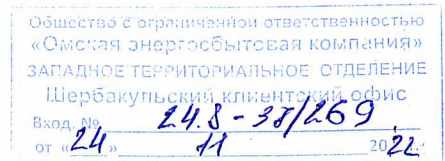 Общество с ограниченной ответственностью
«Омская энергосбытовая компания»
ЗАПАДНОЕ ТЕРРИТОРИАЛЬНОЕ ОТДЕЛЕНИЕ
Шербакульский клиентский офис
Вход. № 24.8-38/269
от «24» 11 2022 г.